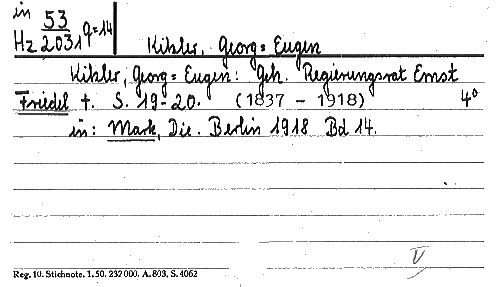 in 53
Hz 2031 q=14
Kitzler, Georg=Eugen
Kitzler, Georg=Eugen: Geh. Regierungsrat Ernst
Friedel †. S. 19-20. (1837 - 1918) 4°
in: Mark, Die. Berlin 1918 Bd 14.
V
Reg. 10. Stichnote. 1. 50. 232 000. A. 803. S. 4062